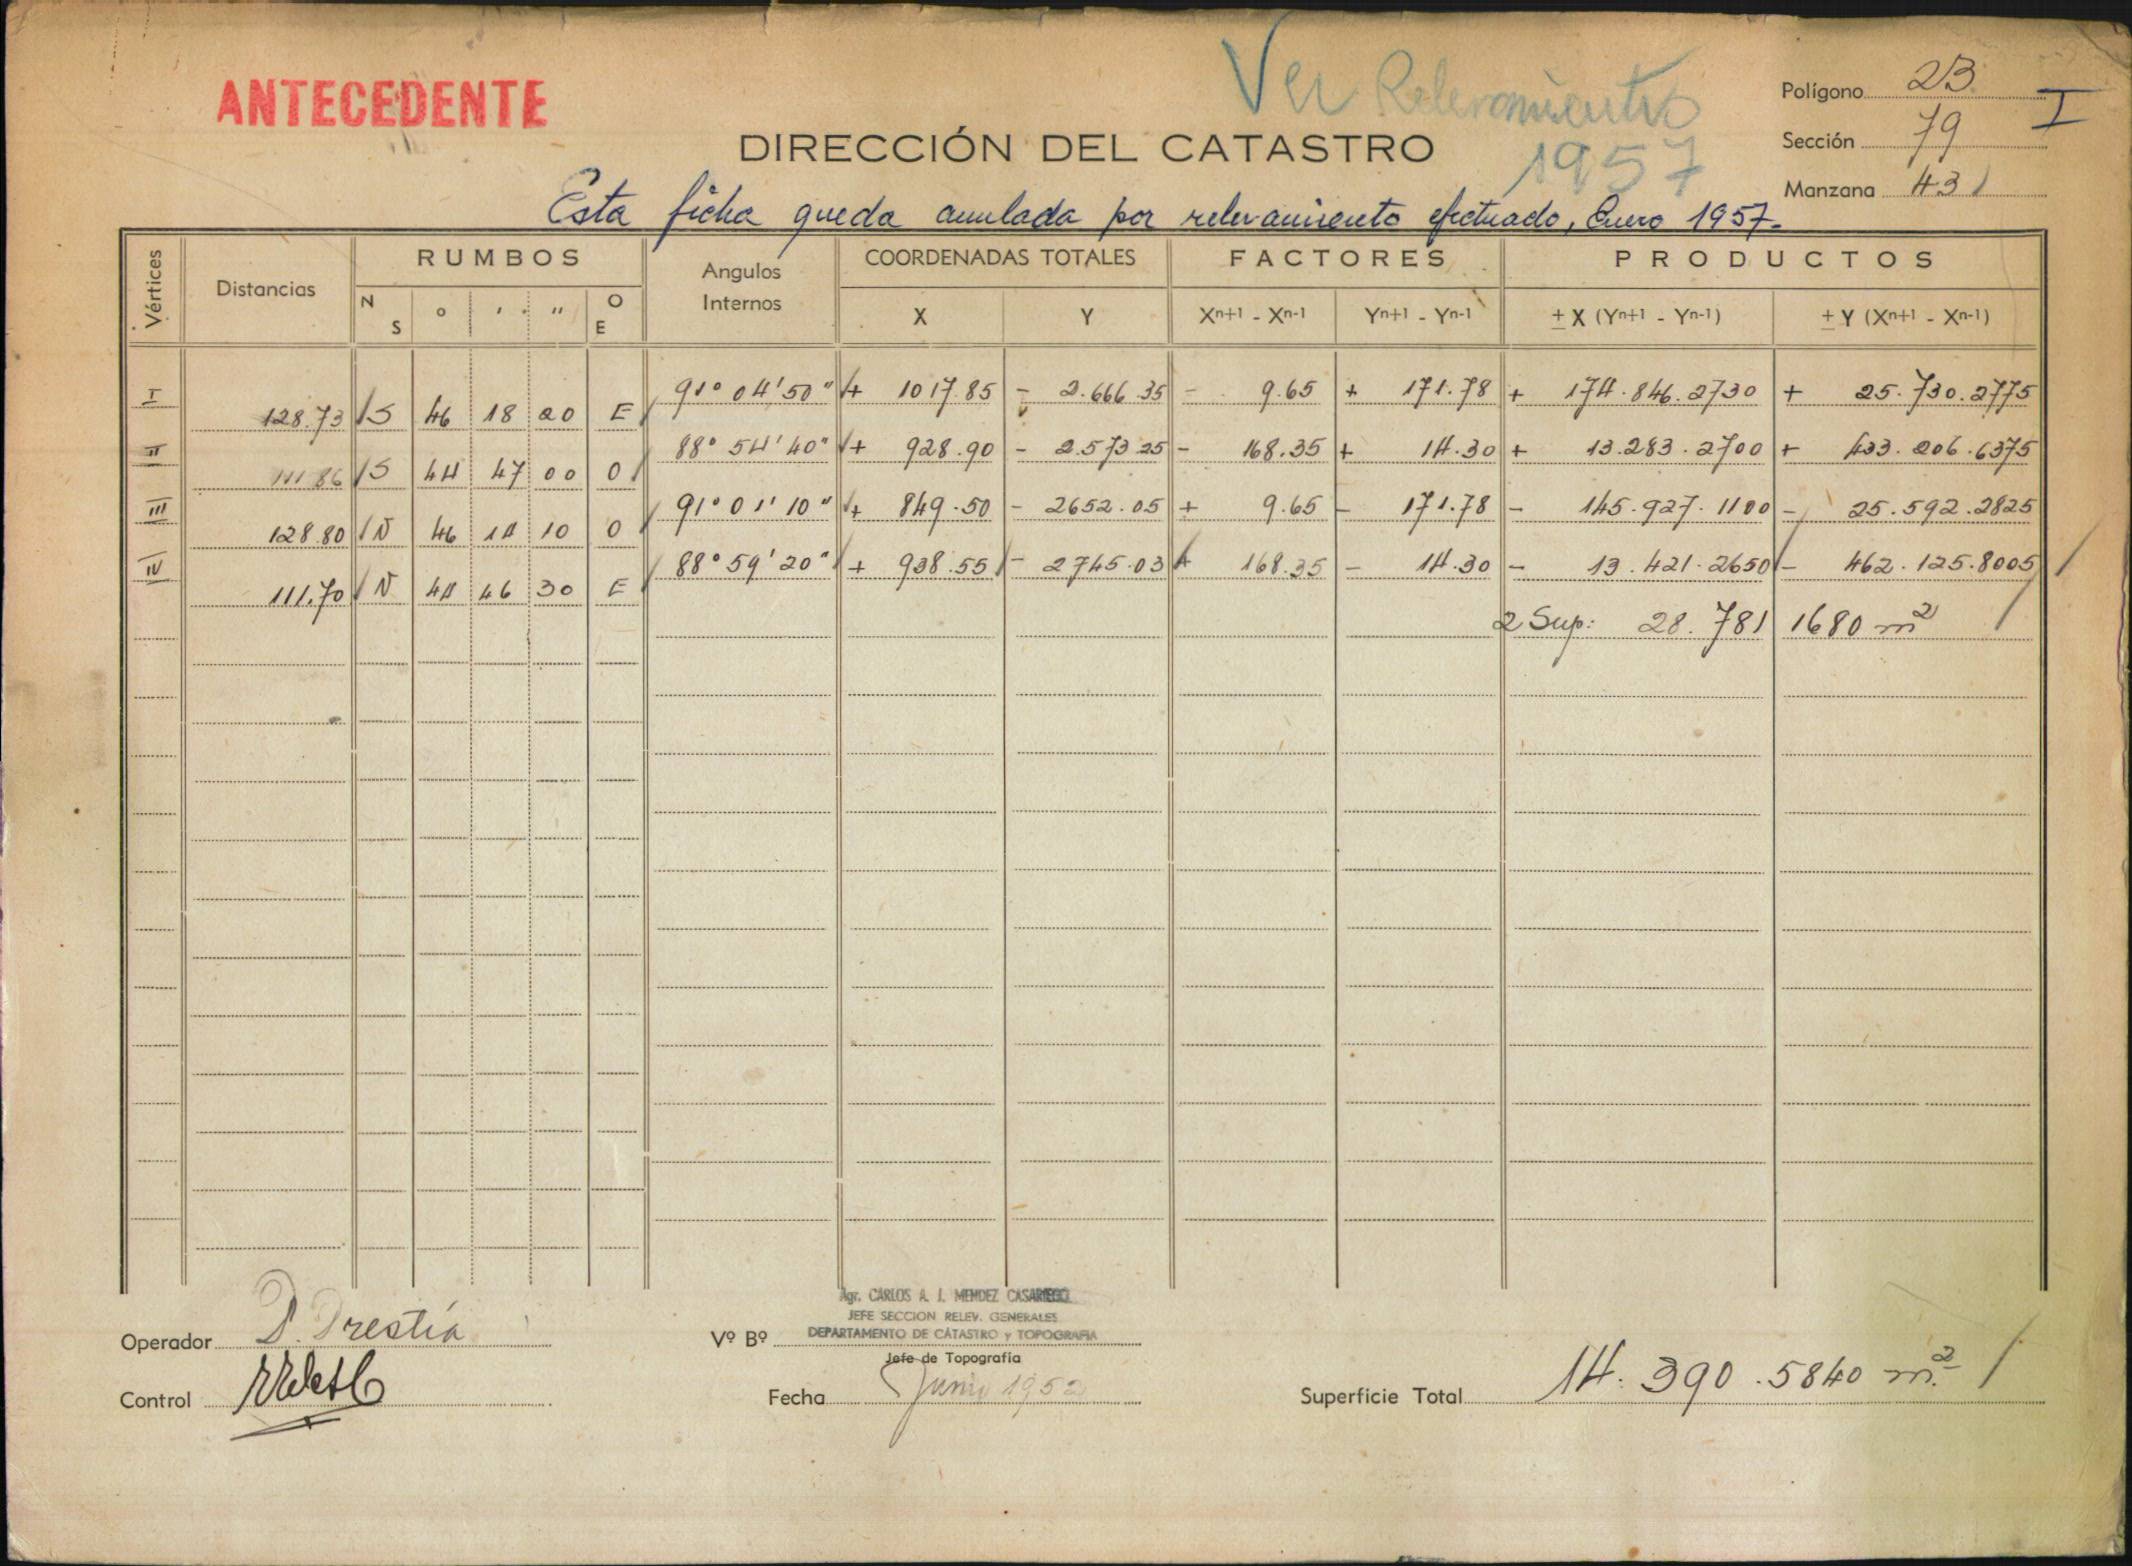 ANTECEDENTE
Ver Relevamiento
1957
Polígono 23 I
Sección 79
Manzana 43
DIRECCIÓN DEL CATASTRO
Esta ficha queda anulada por relevamiento efectuado, Enero 1957.-
Vértices Distancias RUMBOS Angulos Internos COORDENADAS TOTALES FACTORES PRODUCTOS
N S ° ' " O E X Y Xn+1 - Xn-1 Yn+1 - Yn-1 ± X (Yn+1 - Yn-1) ± Y (Xn+1 - Xn-1)
I 91° 04' 50" + 1017.85 - 2.666.35 - 9.65 + 171.78 + 174.846.2730 + 25.730.2775
128.73 S 46 18 20 E
II 88° 54' 40" + 928.90 - 2.573.25 - 168.35 + 14.30 + 13.283.2700 + 433.206.6375
111.86 S 44 47 00 O
III 91° 01' 10" + 849.50 - 2652.05 + 9.65 - 171.78 - 145.927.1100 - 25.592.2825
128.80 N 46 14 10 O
IV 88° 59' 20" + 938.55 - 2745.03 + 168.35 - 14.30 - 13.421.2650 - 462.125.8005
111.70 N 44 46 30 E
2 Sup: 28.781 1680 m2
Agr. CARLOS A. J. MENDEZ CASARIEGO
JEFE SECCION RELEV. GENERALES
DEPARTAMENTO DE CATASTRO y TOPOGRAFIA
Operador D. Prestía
Vº Bº
Jefe de Topografía
Control
Fecha Junio 1952
Superficie Total 14.390.5840 m2